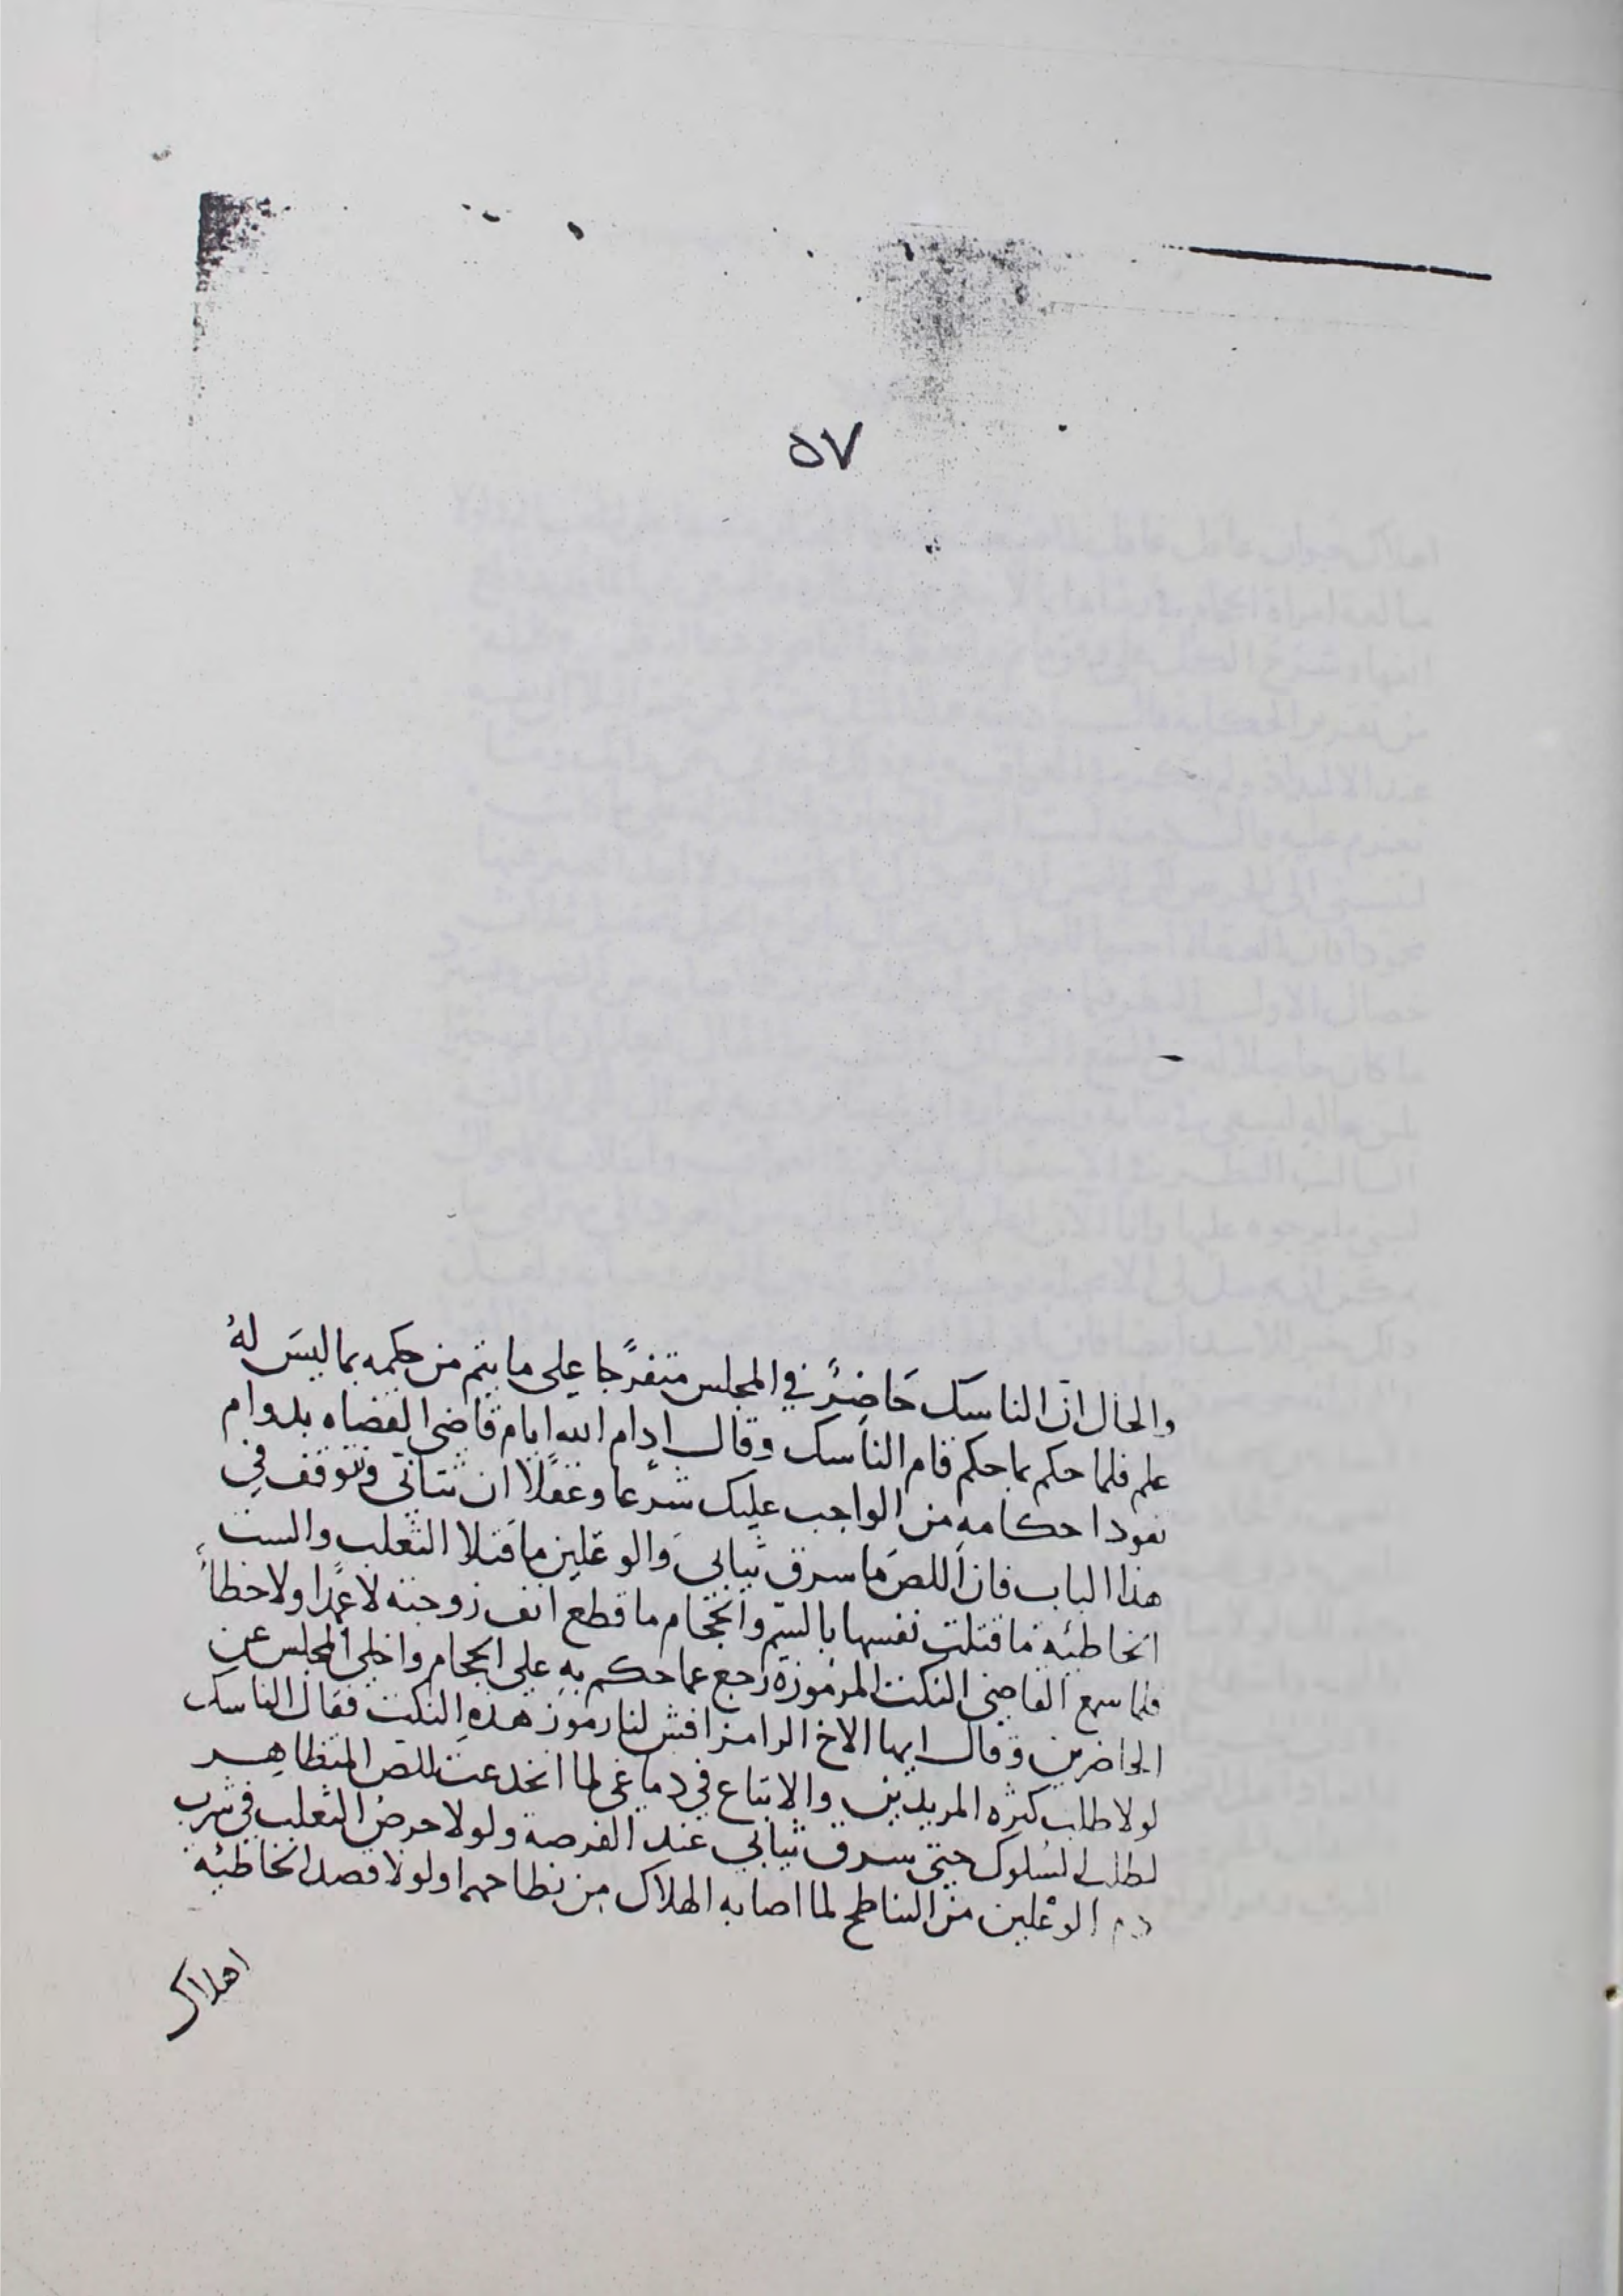 ٥٧
والحال ان الناسك حَاضِرٌ في المجلس متفرّجا على ما يتم من حكمه بما ليسَ لهُ
علم فلما حكم بما حكم قام الناسك وقال ادام الله ايام قاضى القضاه بدوام
نفود احكامه من الواجب عليك شرعا وعقلا ان تتانى وتتوقف في
هذا الباب فان اللص ما سرق ثيابى والوعلين ما قتلا الثعلب والست
الخاطيه ما قتلت نفسها بالسّم والحجام ما قطع انف زوجته لا عمدا ولا خطأً
فلما سمع القاضى النكت المرموزه رجع عما حكم به على الحجام واخلى المجلس عن
الحاضرين وقال ايها الاخ الرامز افش لنا رموز هذه النكت فقال الناسك
لولا طلب كثره المريدين والاتباع في دماغى لما انخدعت للص المتظاهر
لطلب السلوك حتى سرق ثيابي عند الفرصة ولولا حرص الثعلب في شرب
دم الوعلين من التناطح لما اصابه الهلاك من نطاحهما ولولا قصد الخاطئه
اهلاك